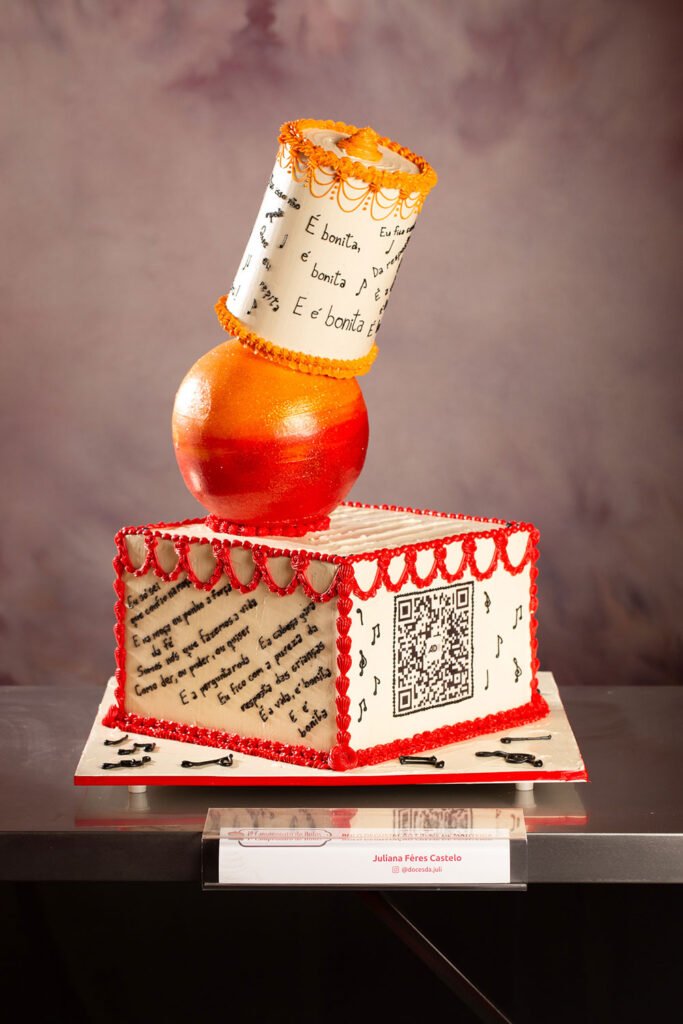 É bonita,
é bonita
E é bonita
Eu fico
Eu só sei
que confio na moça
E na moça eu ponho a força
da fé
Somos nós que fazemos a vida
Como der, ou puder, ou quiser
E a pergunta roda
E a cabeça gira
Eu fico com a pureza da
resposta das crianças
É a vida, é bonita
E é
bonita
Juliana Féres Castelo
@docesda.juli